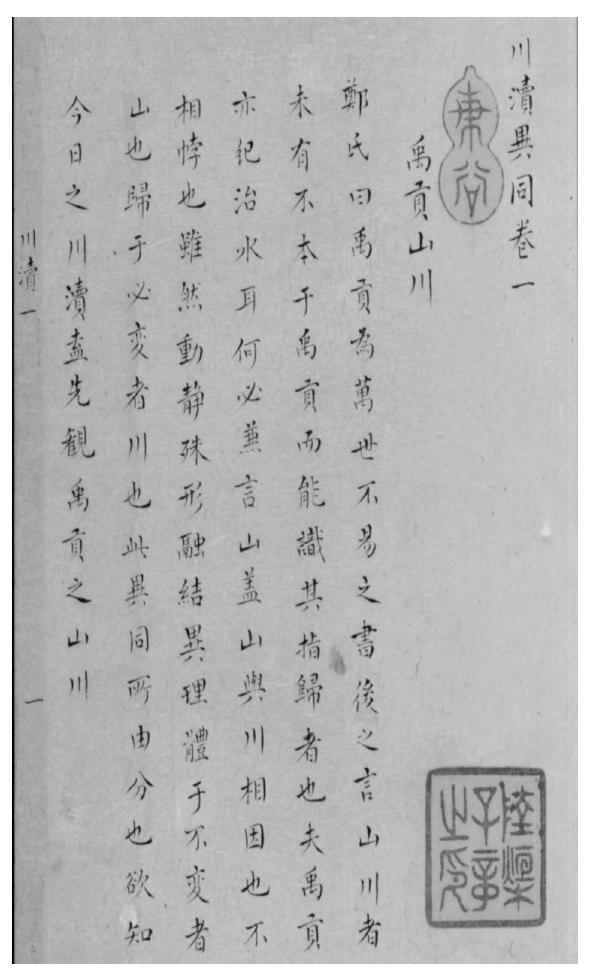 川瀆異同卷一
禹貢山川
鄭氏曰禹貢為萬世不易之書後之言山川者
未有不本于禹貢而能識其指歸者也夫禹貢
亦紀治水耳何必兼言山盖山與川相因也不
相悖也雖然動靜殊形融結異理體于不变者
山也歸于必変者川也此異同所由分也欲知
今日之川瀆盍先観禹貢之山川
川瀆一
一